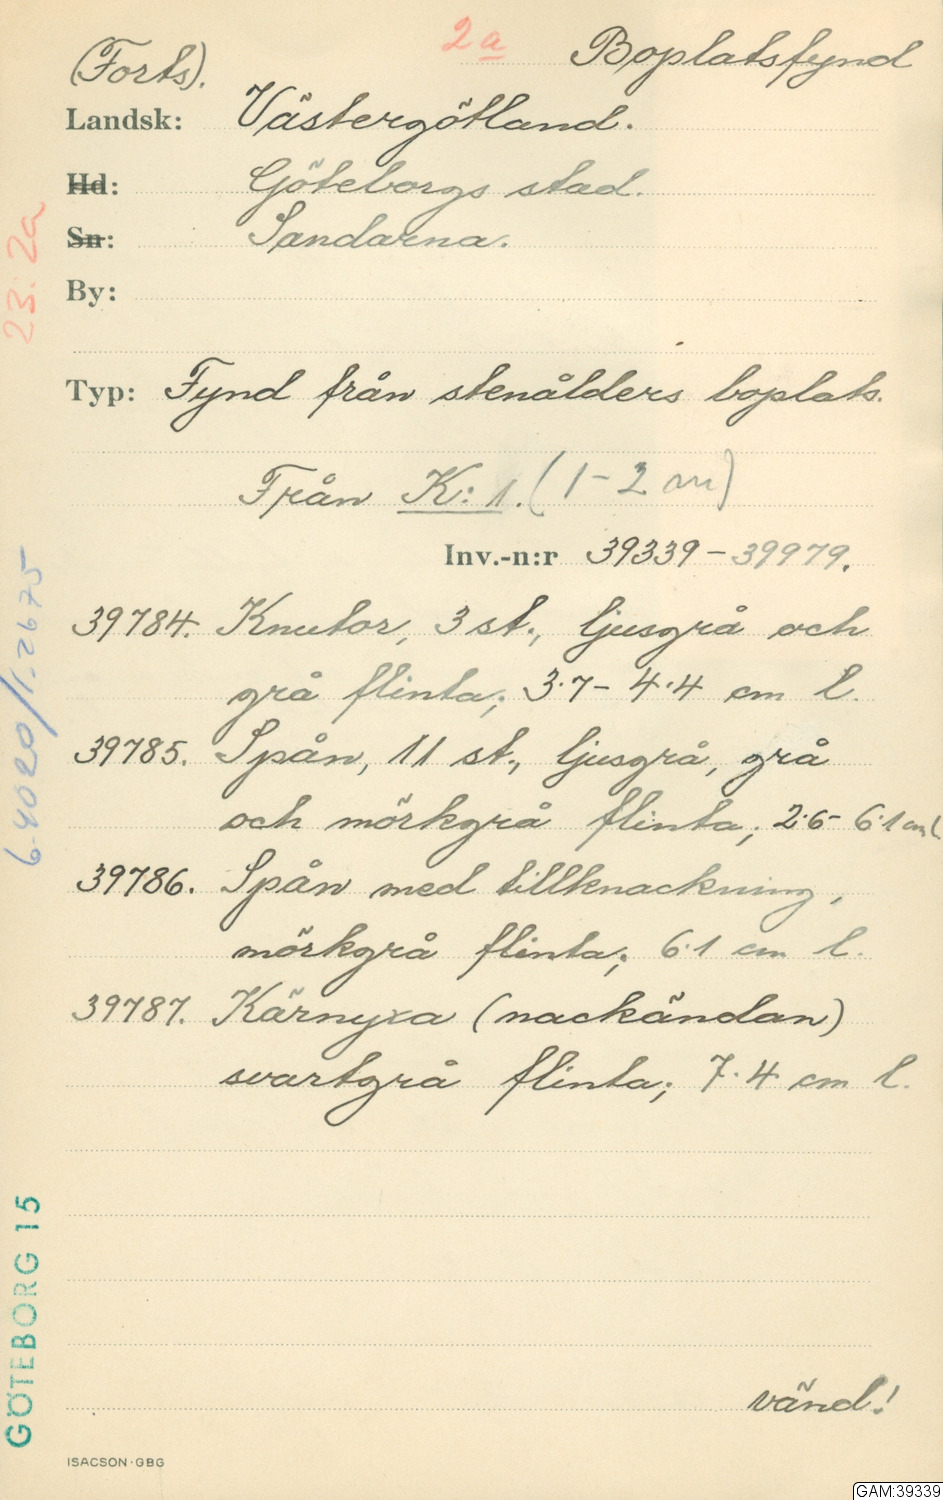 2a Boplatsfynd
(Forts).
Landsk: Västergötland.
Hd: Göteborgs stad.
Sn: Sandarna.
By:
Typ: Fynd från stenålders boplats.
Från K: 1. (1-2 m)
Inv.-n:r 39339-39979.
39784. Knutor, 3 st., ljusgrå och
grå flinta; 3.7-4.4 cm l.
39785. Spån, 11 st., ljusgrå, grå
och mörkgrå flinta; 2.6-6.1 cm l.
39786. Spån med tillknackning,
mörkgrå flinta; 6.1 cm l.
39787. Kärnyxa (nackändan)
svartgrå flinta; 7.4 cm l.
vänd!
ISACSON·GBG
GAM:39339
23. 2a
6-4020/1-2675
GÖTEBORG 15